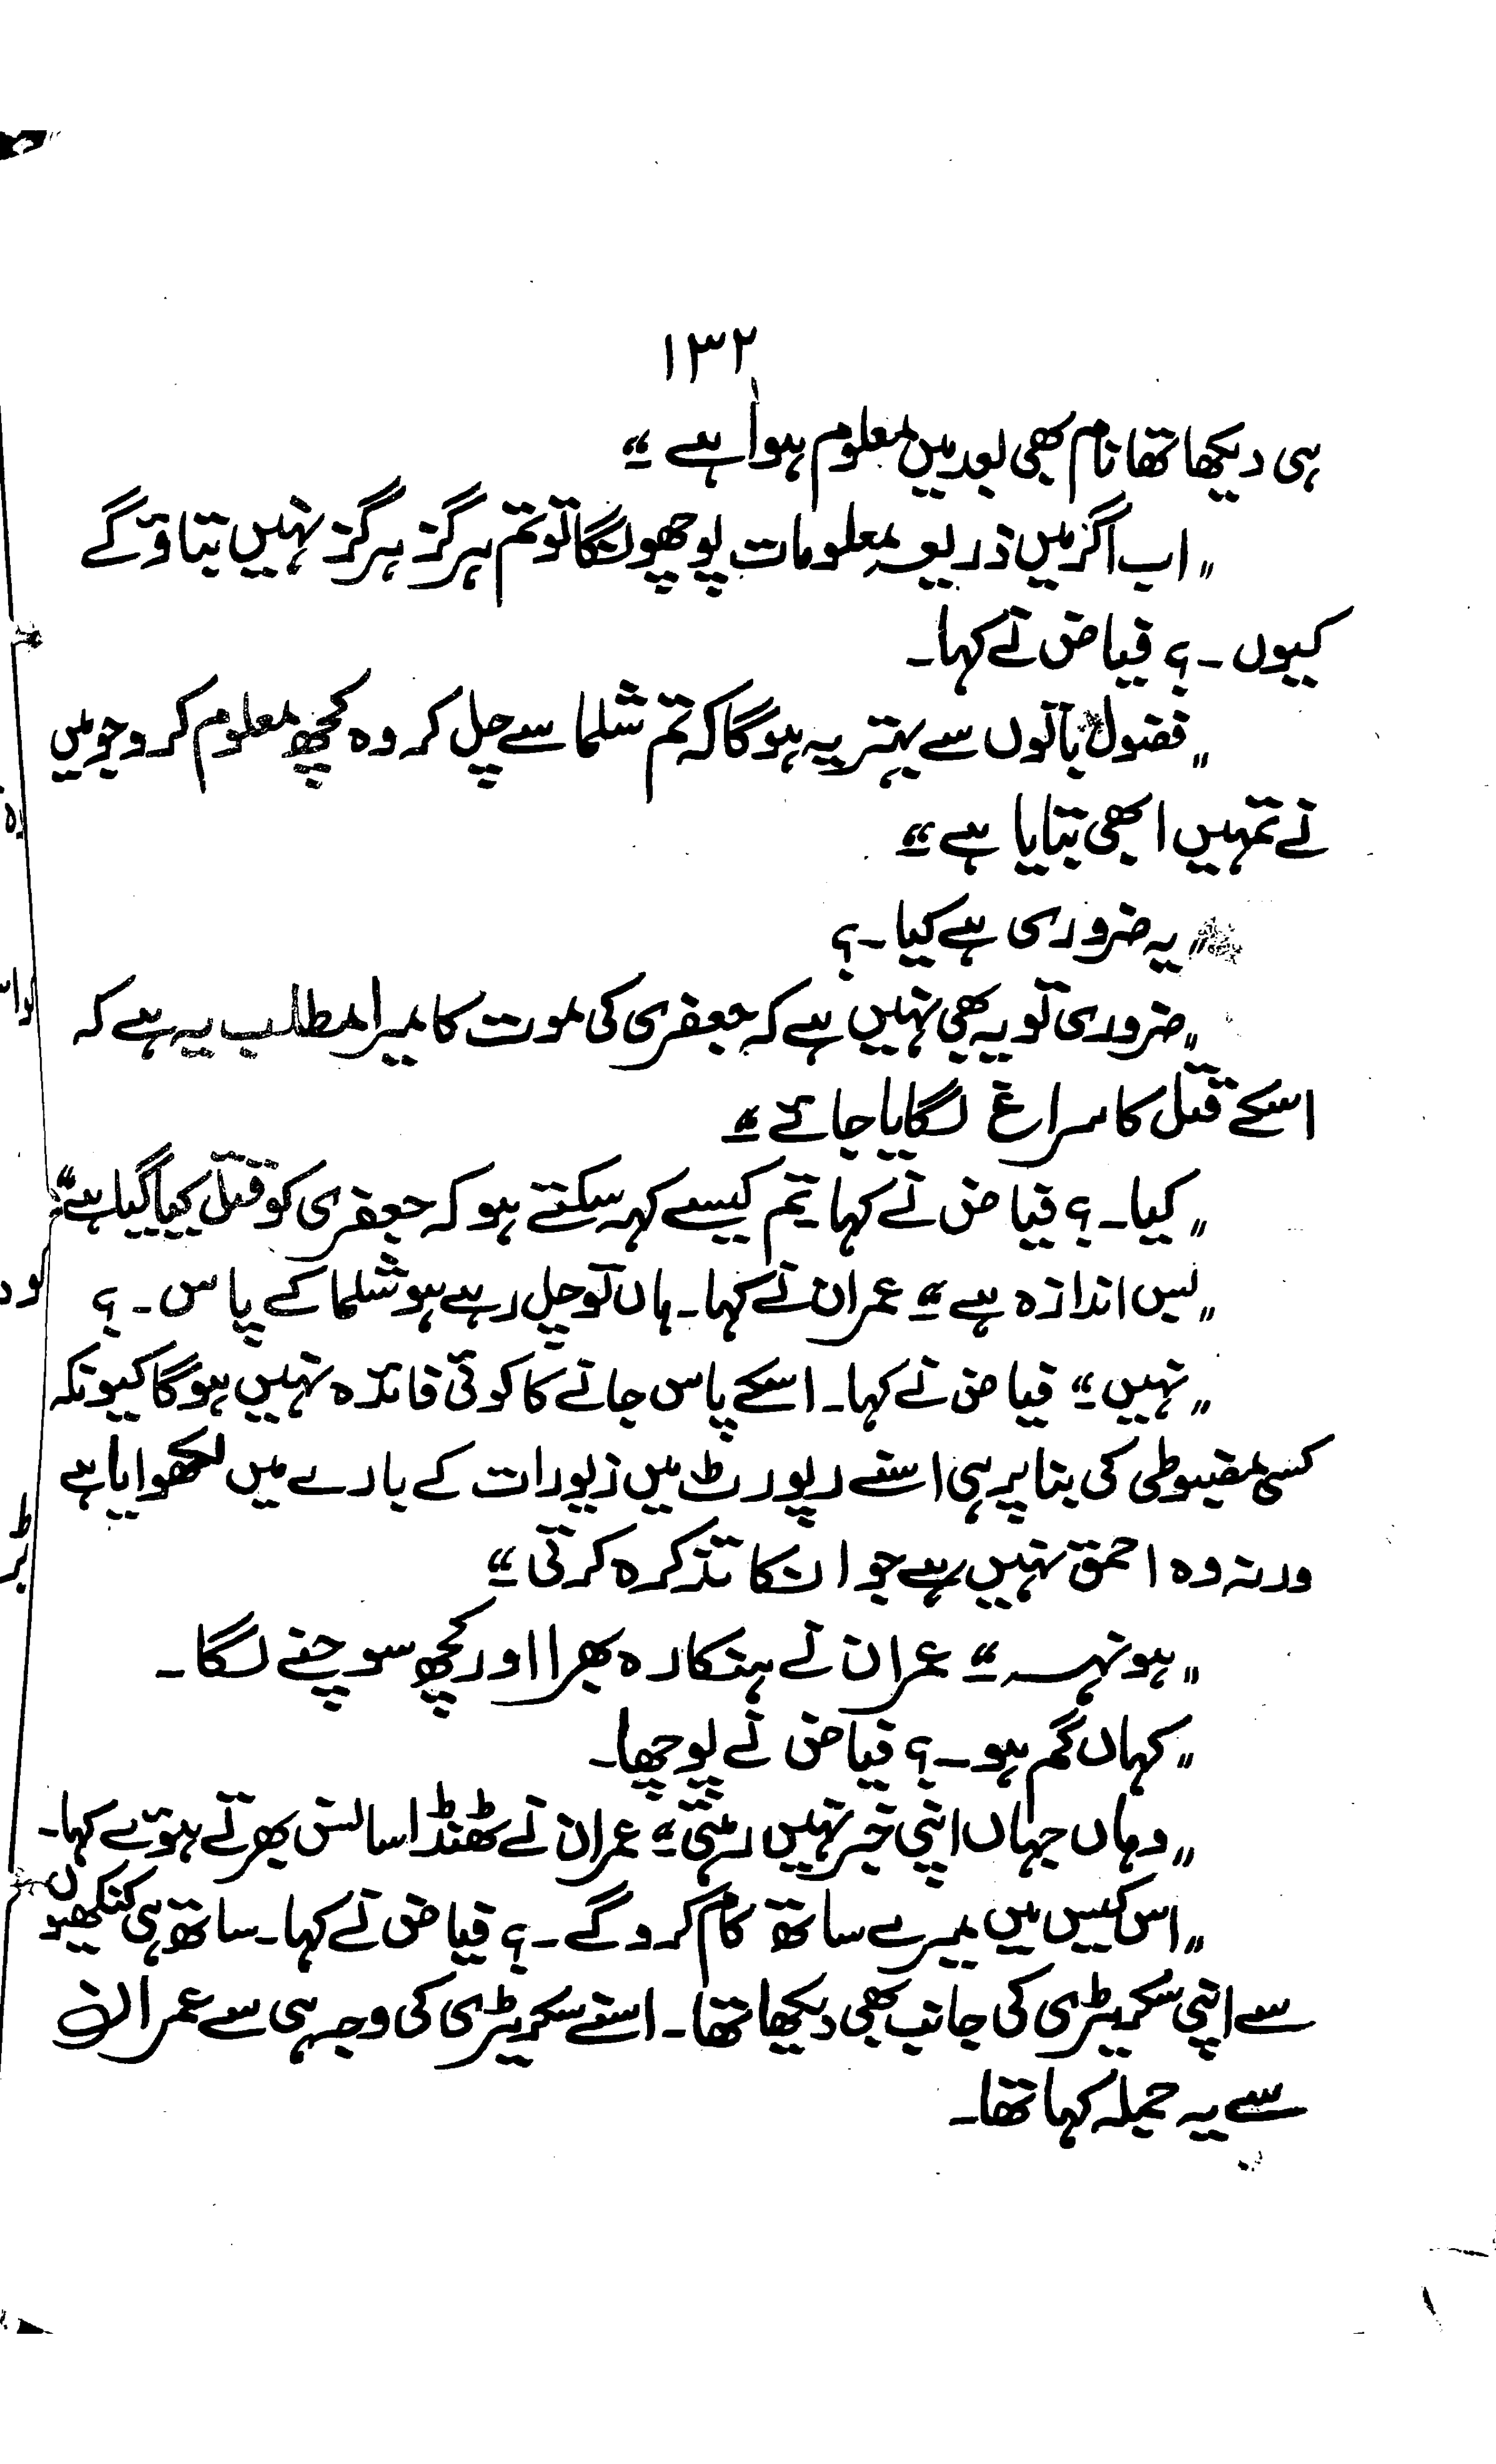 ۱۳۲
ہی دیکھا تھا نام بھی بعد میں معلوم ہوا ہے “
„ اب اگر میں ذریعہ معلومات پوچھونگا تو تم ہرگز ہرگز نہیں بتاؤ گے
کیوں ـ ؟ فیاض نے کہا ـ
„ فضول باتوں سے بہتر یہ ہوگا کہ تم شلما سے چل کر وہ کچھ معلوم کرو جو میں
نے تمہیں ابھی بتایا ہے “
„ یہ ضروری ہے کیا ـ ؟
„ ضروری تو یہ بھی نہیں ہے کہ جعفری کی موت کا میرا مطلب یہ ہے کہ
اسکے قتل کا سراغ لگایا جائے “
„ کیا ـ ؟ فیاض نے کہا تم کیسے کہہ سکتے ہو کہ جعفری کو قتل کیا گیا ہے “
„ بس اندازہ ہے “ عمران نے کہا ـ ہاں تو چل رہے ہو شلما کے پاس ـ ؟
„ نہیں “ فیاض نے کہا ـ اسکے پاس جانے کا کوئی فائدہ نہیں ہوگا کیونکہ
کسی مضبوطی کی بنا پر ہی اسنے رپورٹ میں زیورات کے بارے میں لکھوایا ہے
ورنہ وہ احمق نہیں ہے جو انکا تذکرہ کرتی “
„ ہونہہ “ عمران نے ہنکارہ بھرا اور کچھ سوچنے لگا ـ
„ کہاں گم ہو ـ ؟ فیاض نے پوچھا ـ
„ وہاں جہاں اپنی خبر نہیں رہتی “ عمران نے ٹھنڈا سانس بھرتے ہوئے کہا ـ
„ اس کیس میں میرے ساتھ کام کرو گے ـ ؟ فیاض نے کہا ـ ساتھ ہی کنکھیوں
سے اپنی سکریٹری کی جانب بھی دیکھا تھا ـ اسنے سکریٹری کی وجہ ہی سے عمران
سے یہ جملہ کہا تھا ـ